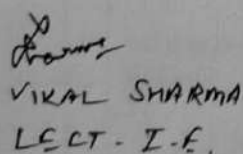 VIKAL SHARMA
LECT - I.E.